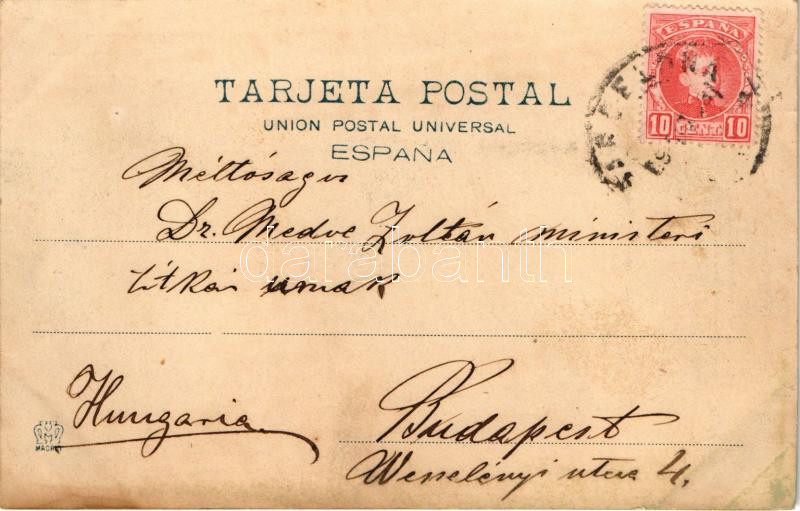 TARJETA POSTAL
UNION POSTAL UNIVERSAL
ESPAÑA
ESPAÑA
10 CENT 10
Méltóságos
Dr. Medve Zoltán ministeri
titkár urnak
Hungaria
Budapest
Wesselényi utca 4.
MADRID
darabanth